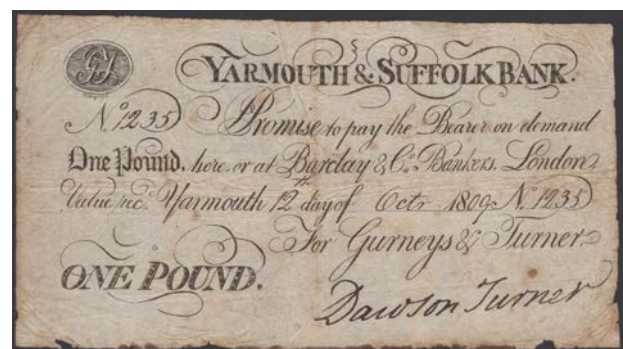 GT
YARMOUTH & SUFFOLK BANK.
No. 1235 Promise to pay the Bearer on demand
One Pound. here or at Barclay & Co. Bankers. London.
Value rec. Yarmouth 12 day of Octr 1809 No. 1235
For Gurneys & Turner
ONE POUND.
Dawson Turner